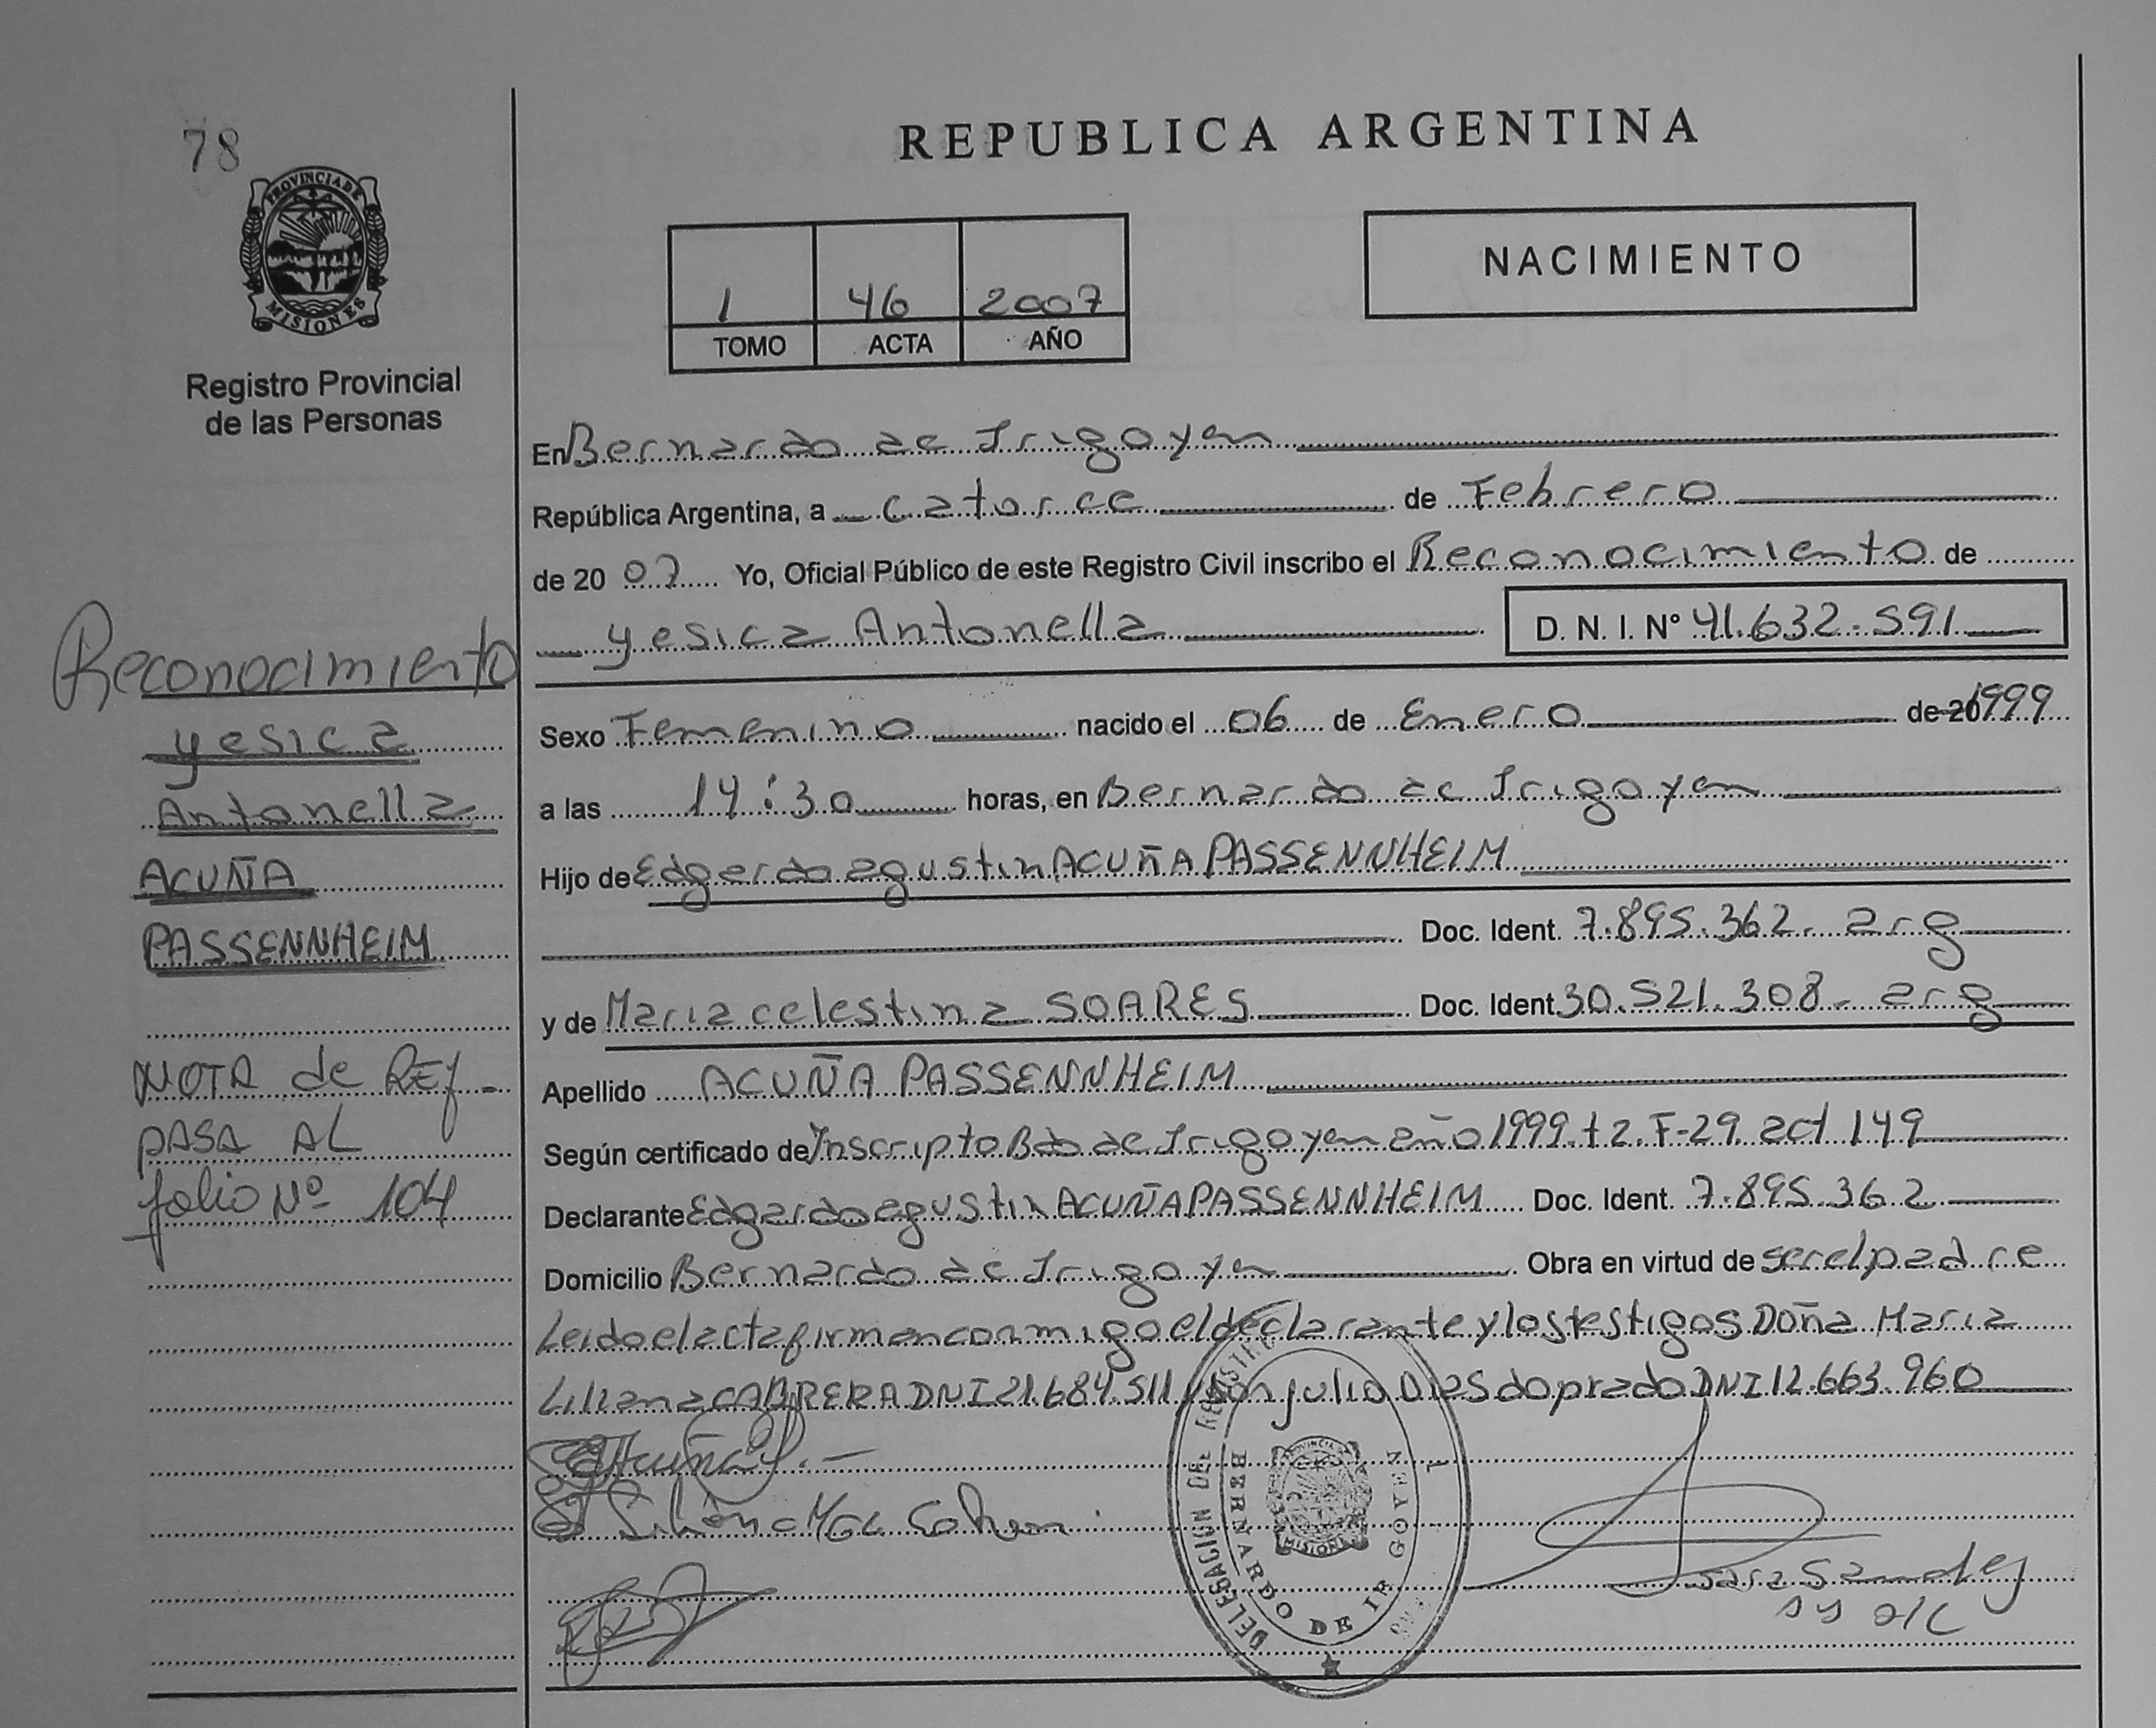 78
PROVINCIA DE
MISIONES
Registro Provincial
de las Personas
Reconocimiento
yesica
Antonella
ACUÑA
PASSENNHEIM
NOTA de REf -
PASA AL
folio Nº 104
REPUBLICA ARGENTINA
1 46 2007
TOMO ACTA AÑO
NACIMIENTO
En Bernardo de Irigoyen
República Argentina, a catorce de Febrero
de 20 07 Yo, Oficial Público de este Registro Civil inscribo el Reconocimiento de
yesica Antonella D. N. I. Nº 41.632.591
Sexo Femenino nacido el 06 de Enero de 20 1999
a las 14:30 horas, en Bernardo de Irigoyen
Hijo de Edgerdo agustin ACUÑA PASSENNHEIM
Doc. Ident. 7.895.362. arg
y de Maria celestina SOARES Doc. Ident. 30.521.308. arg
Apellido ACUÑA PASSENNHEIM
Según certificado de Inscripto Bdo de Irigoyen año 1999. t 2. F-29. act 149
Declarante Edgardo agustin ACUÑA PASSENNHEIM Doc. Ident. 7.895.362
Domicilio Bernardo de Irigoyen Obra en virtud de ser el padre
Leido el acta firman conmigo el declarante y los testigos Doña Maria
Liliana CABRERA DNI 21.684.511 y Don julio Dias do prado DNI 12.663.960
DELEGACION DEL REGISTRO
BERNARDO DE IRIGOYEN
PROVINCIA DE
MISIONES